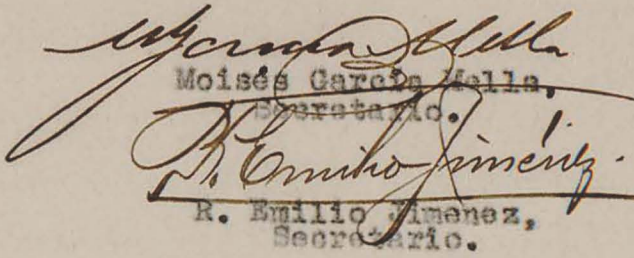 M García Mella
Moisés García Mella,
Secretario.
R. Emilio Jiménez.
R. Emilio Jimenez,
Secretario.